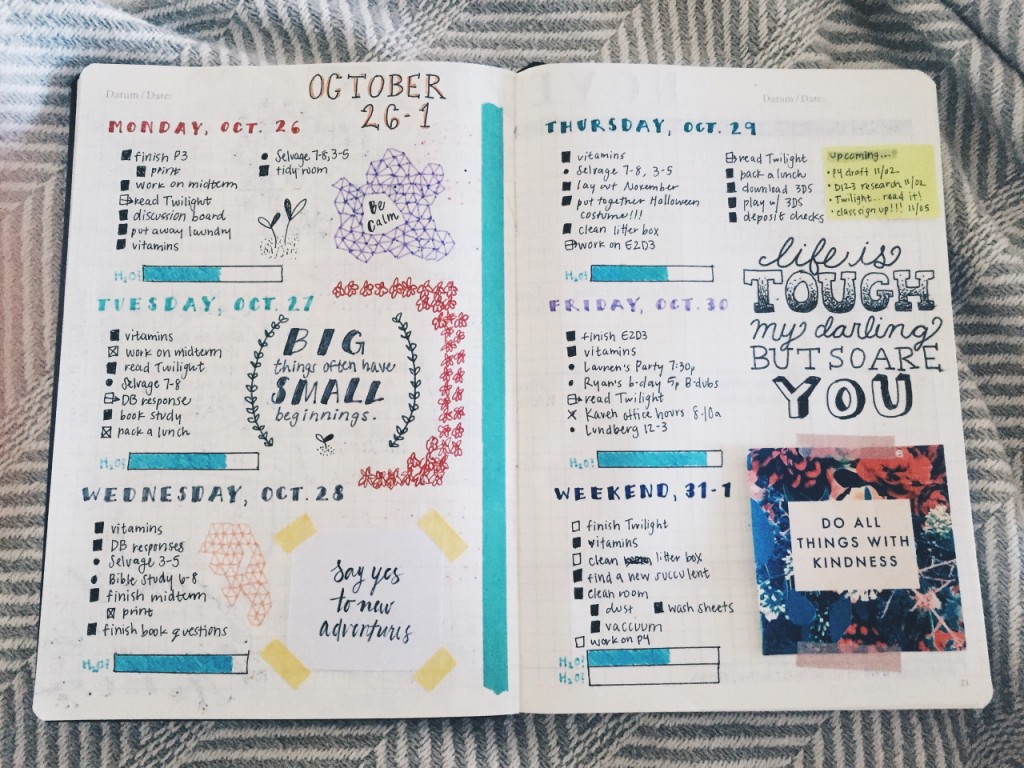 Datum / Date:
OCTOBER
26-1
MONDAY, OCT. 26
finish P3
print
work on midterm
read Twilight
discussion board
put away laundry
vitamins
Selvage 7-8, 3-5
tidy room
Be
Calm
H2O:
TUESDAY, OCT. 27
vitamins
work on midterm
read Twilight
Selvage 7-8
DB response
book study
pack a lunch
BIG
things often have
SMALL
beginnings.
H2O:
WEDNESDAY, OCT. 28
vitamins
DB responses
Selvage 3-5
Bible Study 6-8
finish midterm
print
finish book questions
say yes
to new
adventures
H2O:
Datum / Date:
THURSDAY, OCT. 29
vitamins
Selvage 7-8, 3-5
lay out November
put together Halloween
costume!!!
clean litter box
work on E2D3
read Twilight
pack a lunch
download 3DS
play w/ 3DS
deposit checks
upcoming...
P4 draft 11/02
D123 research 11/02
Twilight... read it!
class sign up!!! 11/05
H2O:
life is
TOUGH
my darling
BUT SO ARE
YOU
FRIDAY, OCT. 30
finish E2D3
vitamins
Lauren's Party 7:30p
Ryan's b-day 5p B-dubs
read Twilight
Karen office hours 8-10a
Lundberg 12-3
H2O:
WEEKEND, 31-1
finish Twilight
vitamins
clean litter box
find a new succulent
clean room
dust
wash sheets
vaccuum
work on P4
H2O:
H2O:
DO ALL
THINGS WITH
KINDNESS
21